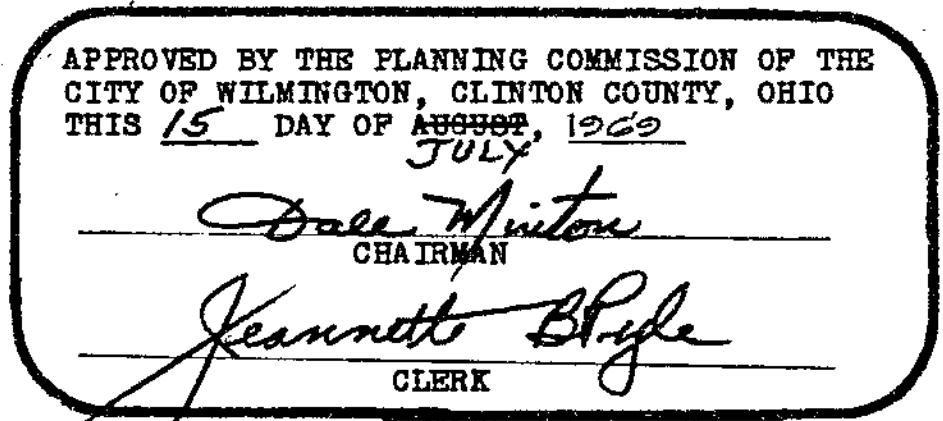 APPROVED BY THE PLANNING COMMISSION OF THE
CITY OF WILMINGTON, CLINTON COUNTY, OHIO
THIS 15 DAY OF AUGUST, 1969
JULY
Dale Minton
CHAIRMAN
Jeannette B Pyle
CLERK